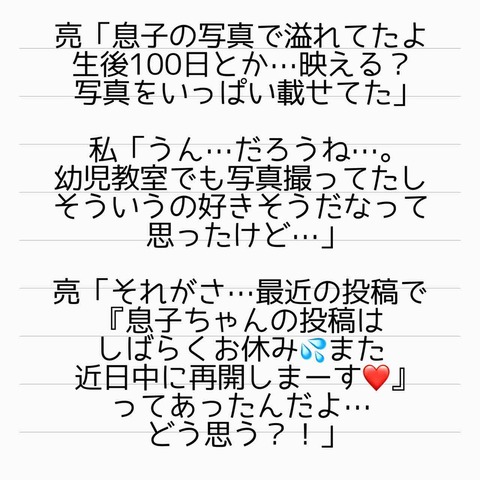 亮「息子の写真で溢れてたよ
生後100日とか…映える？
写真をいっぱい載せてた」
私「うん…だろうね…。
幼児教室でも写真撮ってたし
そういうの好きそうだなって
思ったけど…」
亮「それがさ…最近の投稿で
『息子ちゃんの投稿は
しばらくお休み💦また
近日中に再開しまーす❤️』
ってあったんだよ…
どう思う？！」